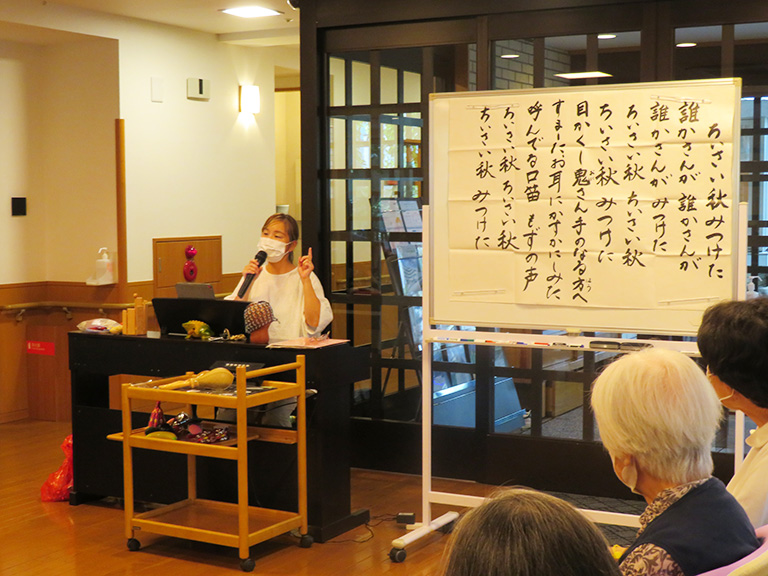 ちいさい秋みつけた
誰かさんが 誰かさんが
誰かさんがみつけた
ちいさい秋 ちいさい秋
ちいさい秋 みつけた
目かくし鬼さん手のなる方へ
すましたお耳にかすかにしみた
呼んでる口笛 もずの声
ちいさい秋 ちいさい秋
ちいさい秋 みつけた